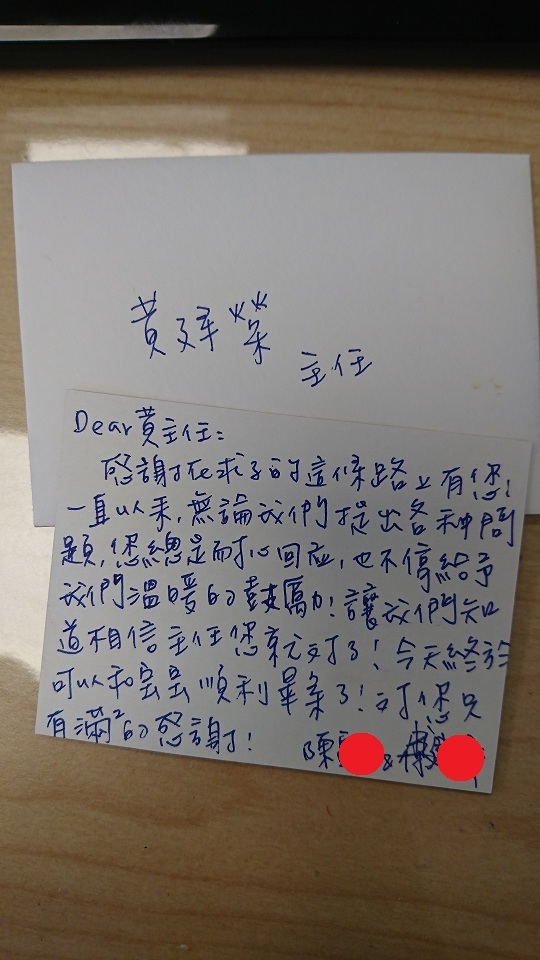 主任
Dear 黃主任：
感謝在求子的這條路上有您！
一直以來，無論我們提出各種問
題，您總是耐心回應，也不停給予
我們溫暖的鼓勵！讓我們知
道相信主任您就對了！今天終於
可以和寶寶順利畢業了！對您只
有滿²的感謝！ 陳 &